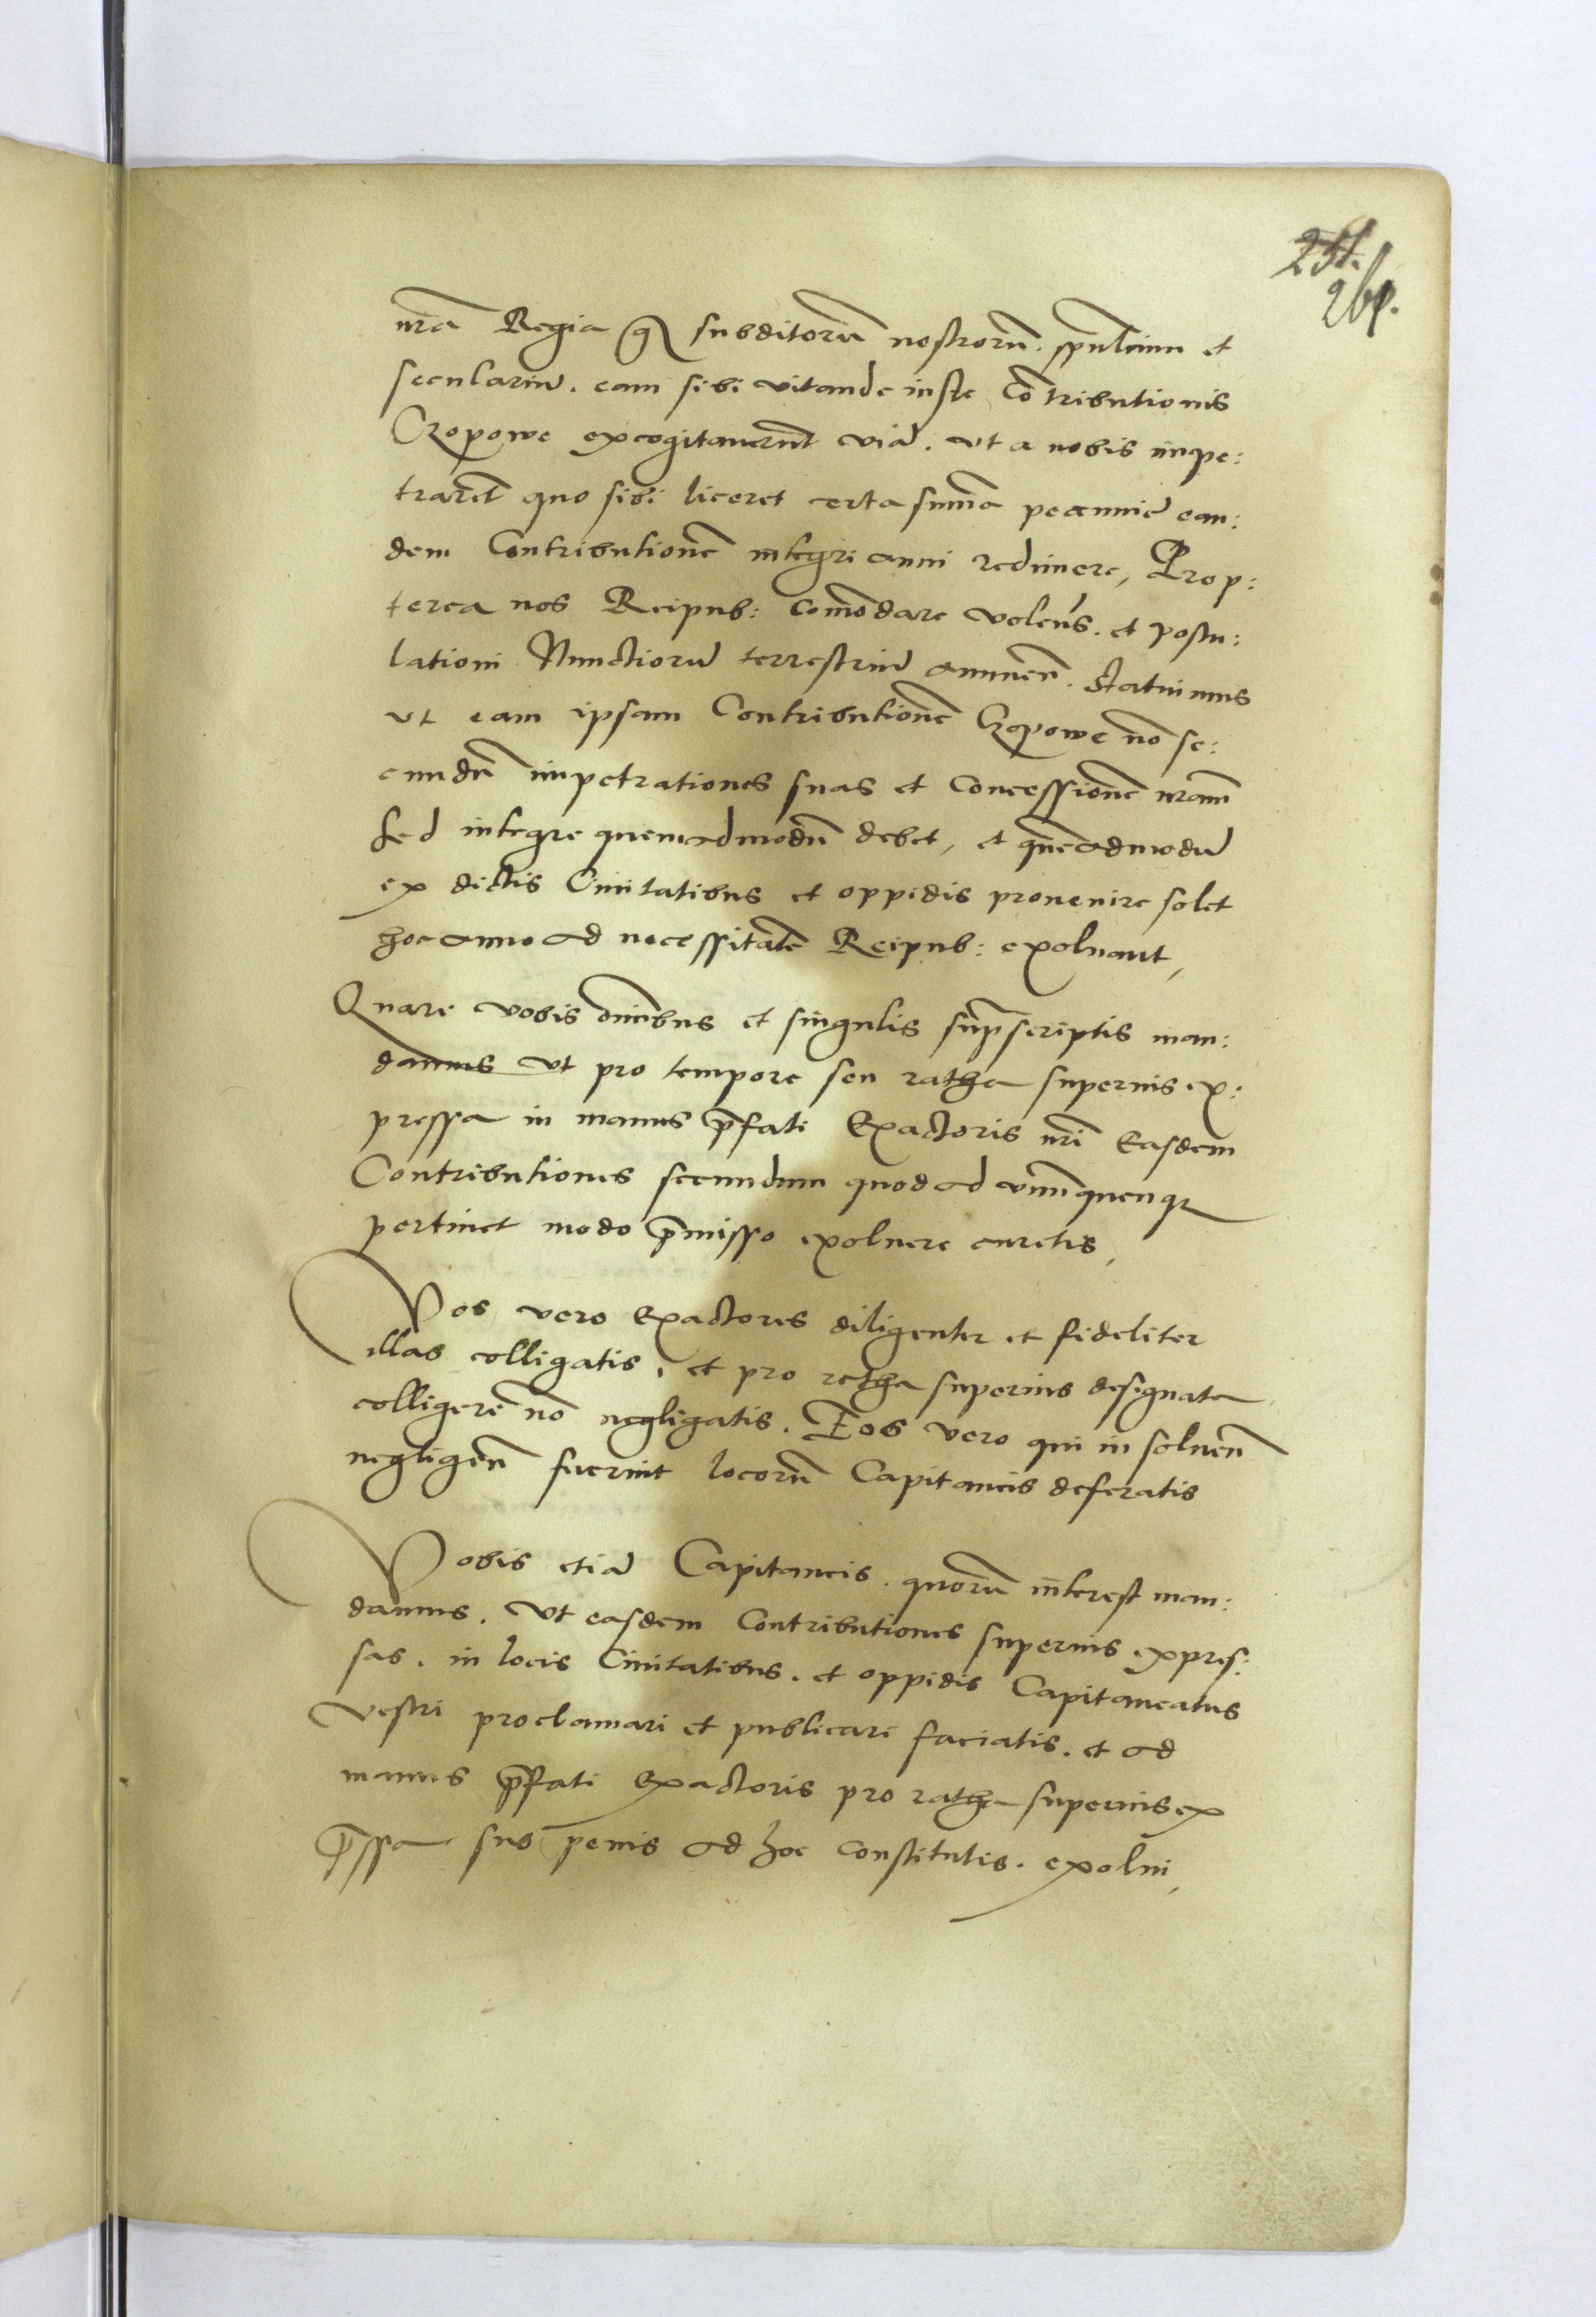 251.
261.
nrã Regia qz subditorũ nostrorũ. spũaliũm et
seculariũ. eam sibi vitande iuste Cõtributionis
Czopowe excogitauerũt viã. vt a nobis impe:
trarẽt quo sibi liceret certa sũma pecunie ean:
dem Contributionẽ integri anni redimere, Prop:
terea nos Reipub: comodare volens. et postu:
lationi Nunctiorũ terrestriũ annuen. statuimus
vt eam ipsam Contributionẽ Czopowe nõ se:
cundũ impetrationes suas et concessionẽ nram
sed integre quemadmodũ debet, et quẽadmodũ
ex dictis Ciuitatibus et oppidis prouenire solet
hoc anno ad necessitatẽ Reipub: exoluant,
Quare vobis omnibus et singulis suprascriptis man:
damus vt pro tempore seu ratha superius ex:
pressa in manus p̃fati Exactoris nri Easdem
Contributiones secundum quod ad vnũquenqz
pertinet modo p̃misso exoluere curetis,
Vos vero Exactores diligenter et fideliter
illas colligatis, et pro ratha superius designata
colligere nõ negligatis. Eos vero qui in soluen
negligen fuerint locorũ Capitaneis deferatis
Vobis etiã Capitaneis. quorũ interest man:
damus. Vt easdem Contributiones superius expres:
sas. in locis Ciuitatibus. et oppidis Capitaneatus
Vestri proclamari et publicari faciatis. et ad
manus p̃fati Exactoris pro ratha superius ex
p̃ssa sub penis ad hoc constitutis. exolui,